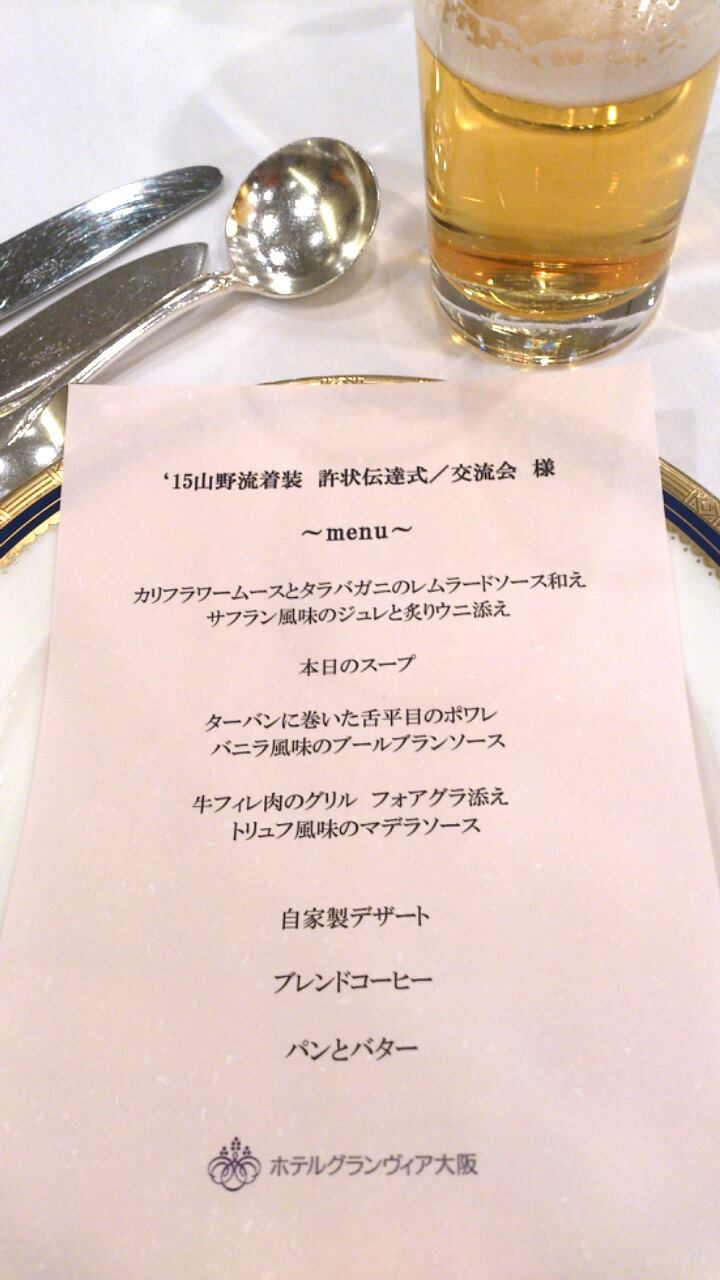 ‘15山野流着装 許状伝達式／交流会 様
～menu～
カリフラワームースとタラバガニのレムラードソース和え
サフラン風味のジュレと炙りウニ添え
本日のスープ
ターバンに巻いた舌平目のポワレ
バニラ風味のブールブランソース
牛フィレ肉のグリル フォアグラ添え
トリュフ風味のマデラソース
自家製デザート
ブレンドコーヒー
パンとバター
ホテルグランヴィア大阪